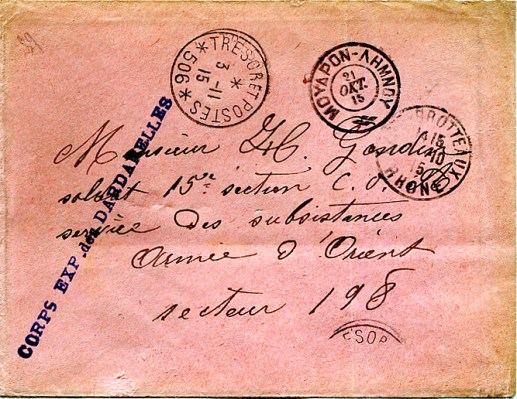 TRESOR ET POSTES
* 506 *
3 -11
15
ΜΟΥΔΡΟΝ-ΛΗΜΝΟΥ
21
ΟΚΤ.
15
BROTTEAUX
15
10
RHONE
CORPS EXP. des DARDANELLES
Monsieur H. Gondin
soldat 15e section C.O.A
service des subsistances
armée d'Orient
secteur 198
ESOR